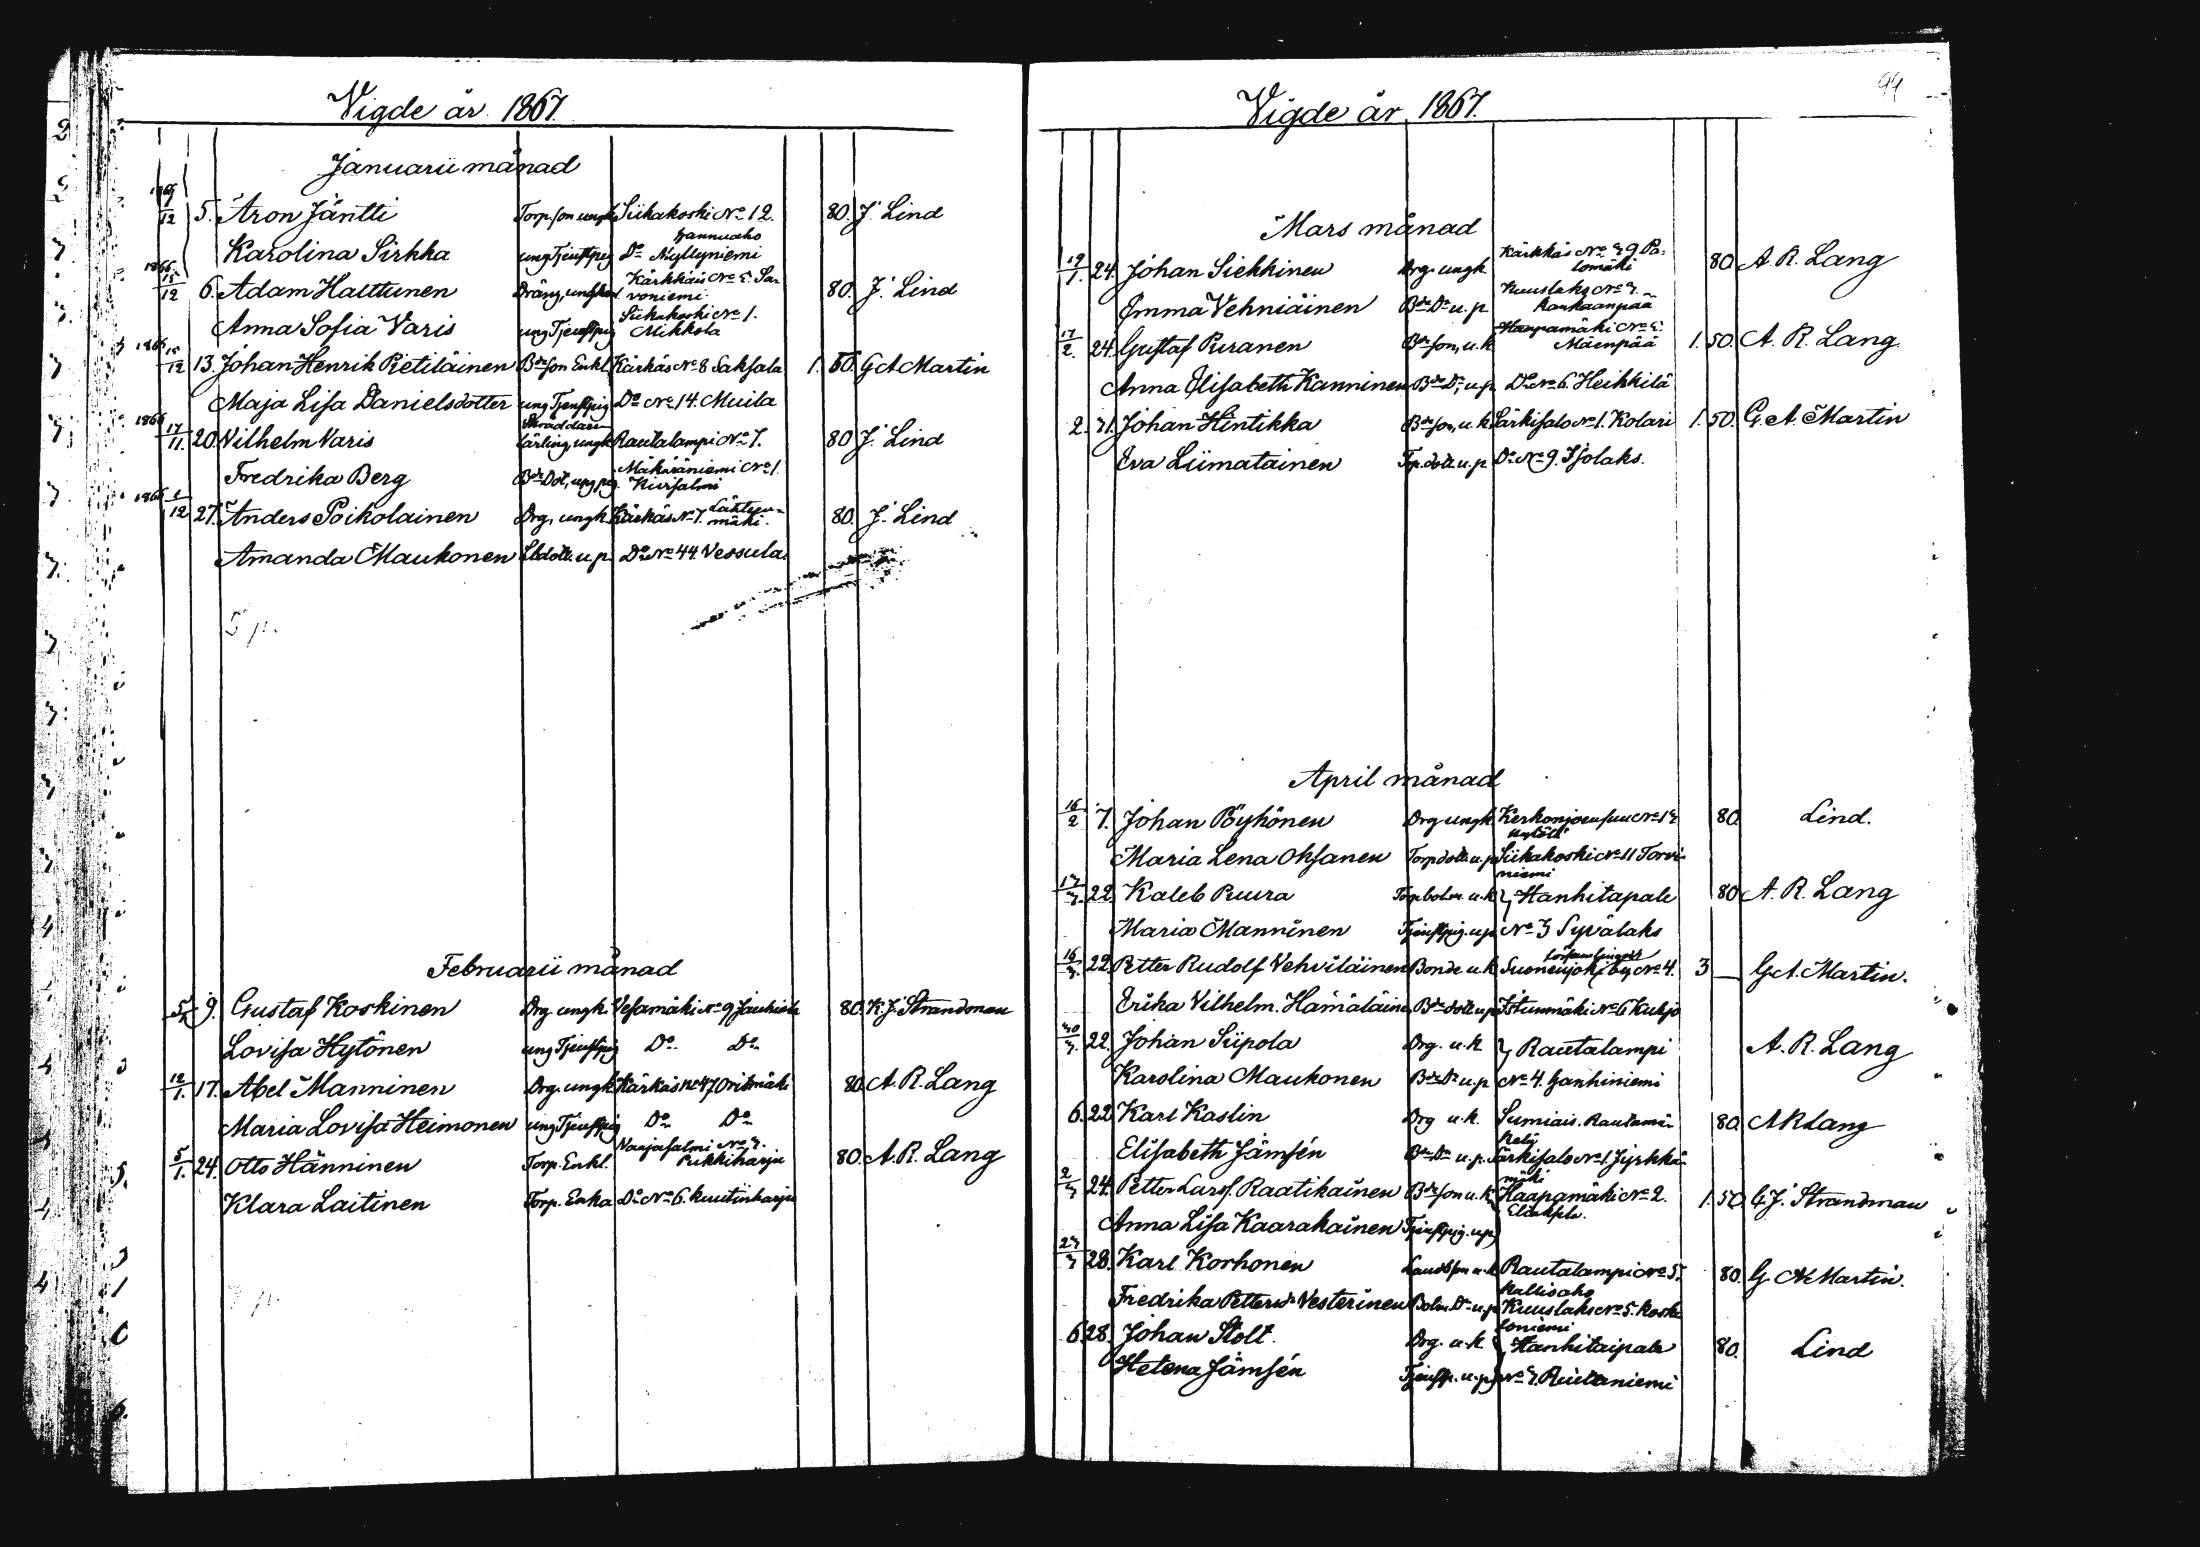 Vigde år 1867.
Januarii månad
12 5. Aron Jäntti Torp.son ungk Siikakoski No 12. 80. J. Lind
Hannuaho
Karolina Sirkka ung Tjenstpig Do Myllyniemi
1866
15/12 6. Adam Halttunen Dräng, ungkarl Kärkkäis No 2. Sa-
voniemi. 80. J. Lind
Anna Sofia Varis ung Tjenstpig Siikakoski No 1.
Mikkola
1866 15/12 13. Johan Henrik Pietiläinen Bdeson Enkl. Kärkäs No 8 Saksala 1. 60. G A Martin
Maja Lisa Danielsdotter ung Tjenstpig Do No 14. Muila
1866 17/11. 20. Vilhelm Varis Skräddare
lärling, ungk Rautalampi No 7. 80 J. Lind
Fredrika Berg Bde Dot, ung pig. Mäkäräniemi No 1.
Kiersalmi
1866 1/12 27. Anders Poikolainen Drg, ungk. Kärkäs No 7. Lähteen-
mäki. 80. J. Lind
Amanda Maukonen dott. u.p. Do No 44 Vessula.
5 p.
Februarii månad
9. Gustaf Koskinen Drg ungk. Vesamäki No 9 80. K. J. Strandman
Lovisa Hytönen ung Tjenstpig Do Do
12/1. 17. Abel Manninen Drg. ungk Kärkäs No 47 Orismäki 80. A. R. Lang
Maria Lovisa Heimonen ung Tjenstpig Do Do
5/1. 24. Otto Hänninen Torp. Enkl. Vaajasalmi No 3.
Pukkiharju 80. A. R. Lang
Klara Laitinen Torp. Enka Do No 6. Kuutinharju
3 p.
Vigde år 1867.
94
Mars månad
19/1. 24. Johan Siekkinen Drg. ungk Kärkkäs No 29. Pa-
lomäki 80 A. R. Lang
Emma Vehniäinen Bde Dr u. p. Kuuslaks No 3.
Kankaanpää
17/2. 24. Gustaf Puranen Bdeson, u. k Haapamäki No 2.
Mäenpää 1. 50. A. R. Lang.
Anna Elisabeth Kanninen Bde Dr, u. p. Do No 6. Heikkilä
2. 31. Johan Hintikka Bdeson, u. k. Särkisalo No 1. Kolari 1. 50. G. A. Martin
Eva Liimatainen Tp. dott. u. p. Do No 9. Isolaks.
April månad
16/2 7. Johan Pöyhönen Drg ungk. Kerkonjoensuu No 13 80. Lind.
Maria Lena Oksanen Torp dott. u. p Siikakoski No 11 Torvi-
niemi
17/3. 22. Kaleb Puura u. k Hanhitapale 80 A. R. Lang
Maria Manninen Tjenstpig. u. p No 3 Syvälaks
16/3. 22. Petter Rudolf Vehviläinen Bonde u. k Suonenjoki by No 4. 3 — G A. Martin.
Erika Vilhelm. Hämäläinen Bde dott. u p Istunmäki No 6 Kukjo
30/3. 22. Johan Siipola Drg. u. k Rautalampi A. R. Lang
Karolina Maukonen Bde Dr u. p No 4. Hanhiniemi
6. 22 Karl Kaslin Drg u. k. Sumiais. Rautamä- 80. A R Lang
Elisabeth Jämsén Bde Dr u. p. Särkisalo No 1. Jyrkkä-
mäki
2/3 24. Petter Larsf. Raatikainen Bdeson u. k. Haapamäki No 2. 1. 50. G J. Strandman
Anna Lisa Kaarakainen Tjenstpig. u p
23/3 28. Karl Korhonen u. k Rautalampi No 5. 80. G A Martin.
Kallioaho
Fredrika Pettersdr Vesterinen Bolm. Dr u. p Kuuslaks No 5. Koske-
loniemi
6. 28. Johan Stolt. Drg. u. k Hanhitaipale 80. Lind
Helena Jämsén Tjenstp. u. p No 3. Riutaniemi